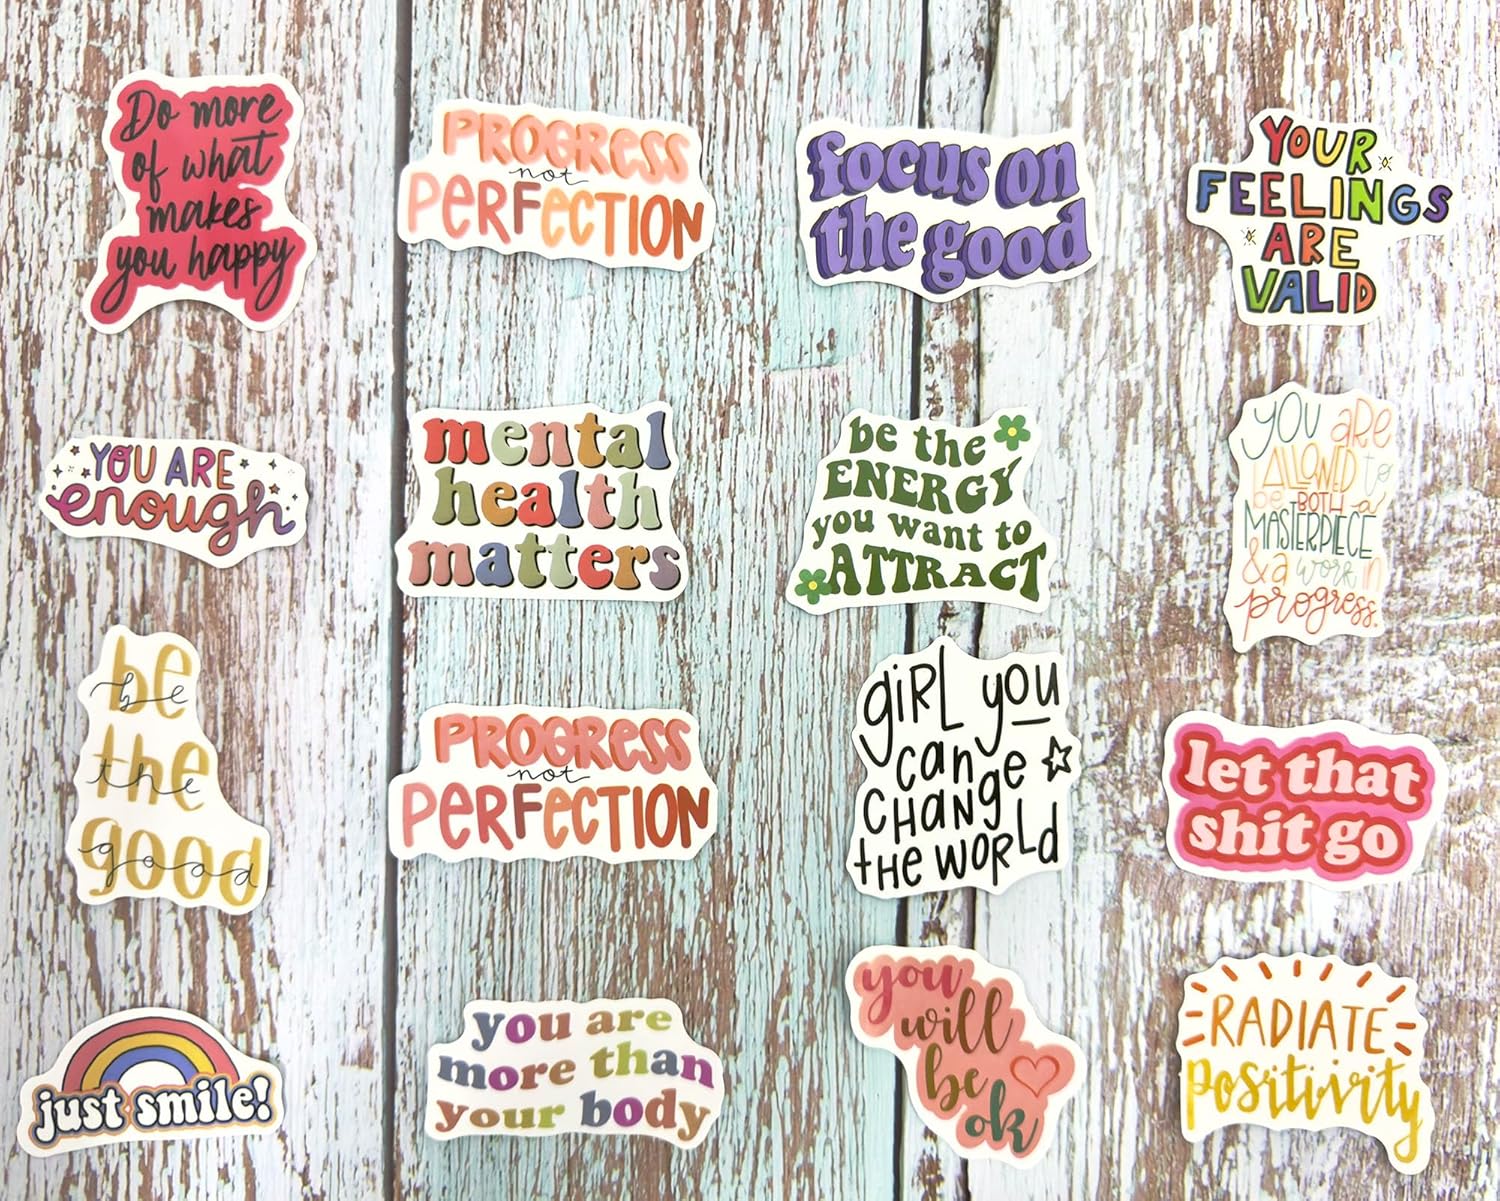 Do more
of what
makes
you happy
PROGRESS
not
PERFECTION
focus on
the good
YOUR
FEELINGS
ARE
VALID
YOU ARE
enough
mental
health
matters
be the
ENERGY
you want to
ATTRACT
YOU are
ALLOWED to
be BOTH a
MASTERPIECE
& a work in
progress.
be
be
the
the
good
good
PROGRESS
not
PERFECTION
girl you
can
change
the world
let that
shit go
just smile!
you are
more than
your body
you
will
be
ok
RADIATE
positivity